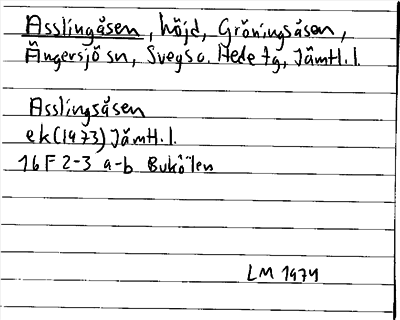 Asslingåsen, höjd, Gröningsåsen,
Ängersjö sn, Svegs o. Hede tg, Jämtl. l.
Asslingsåsen
ek (1973) Jämtl. l.
16 F 2-3 a-b Bukölen
LM 1974